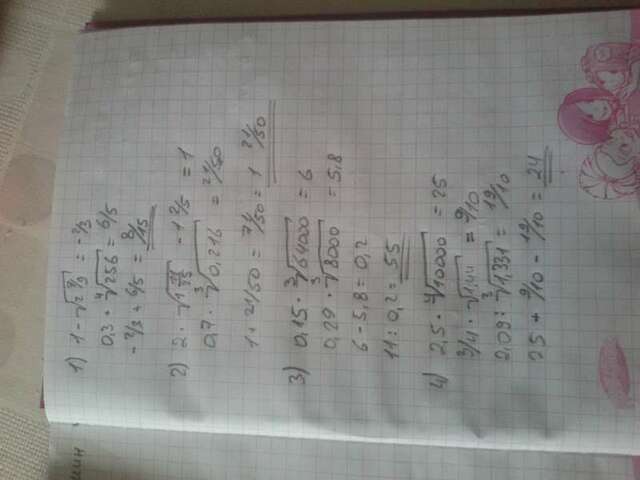 1) 1 - √2 7/9 = -2/3
0,3 · ⁴√256 = 6/5
-2/3 + 6/5 = 8/15
2) 2 · √1 24/25 - 1 2/5 = 1
0,7 · ³√0,216 = 21/50
1 + 21/50 = 71/50 = 1 21/50
3) 0,15 · ³√64000 = 6
0,29 · ³√8000 = 5,8
6 - 5,8 = 0,2
11 : 0,2 = 55
4) 2,5 · ⁴√10000 = 25
3/4 · √1,44 = 9/10
2,09 : ³√1,331 = 19/10
25 + 9/10 - 19/10 = 24